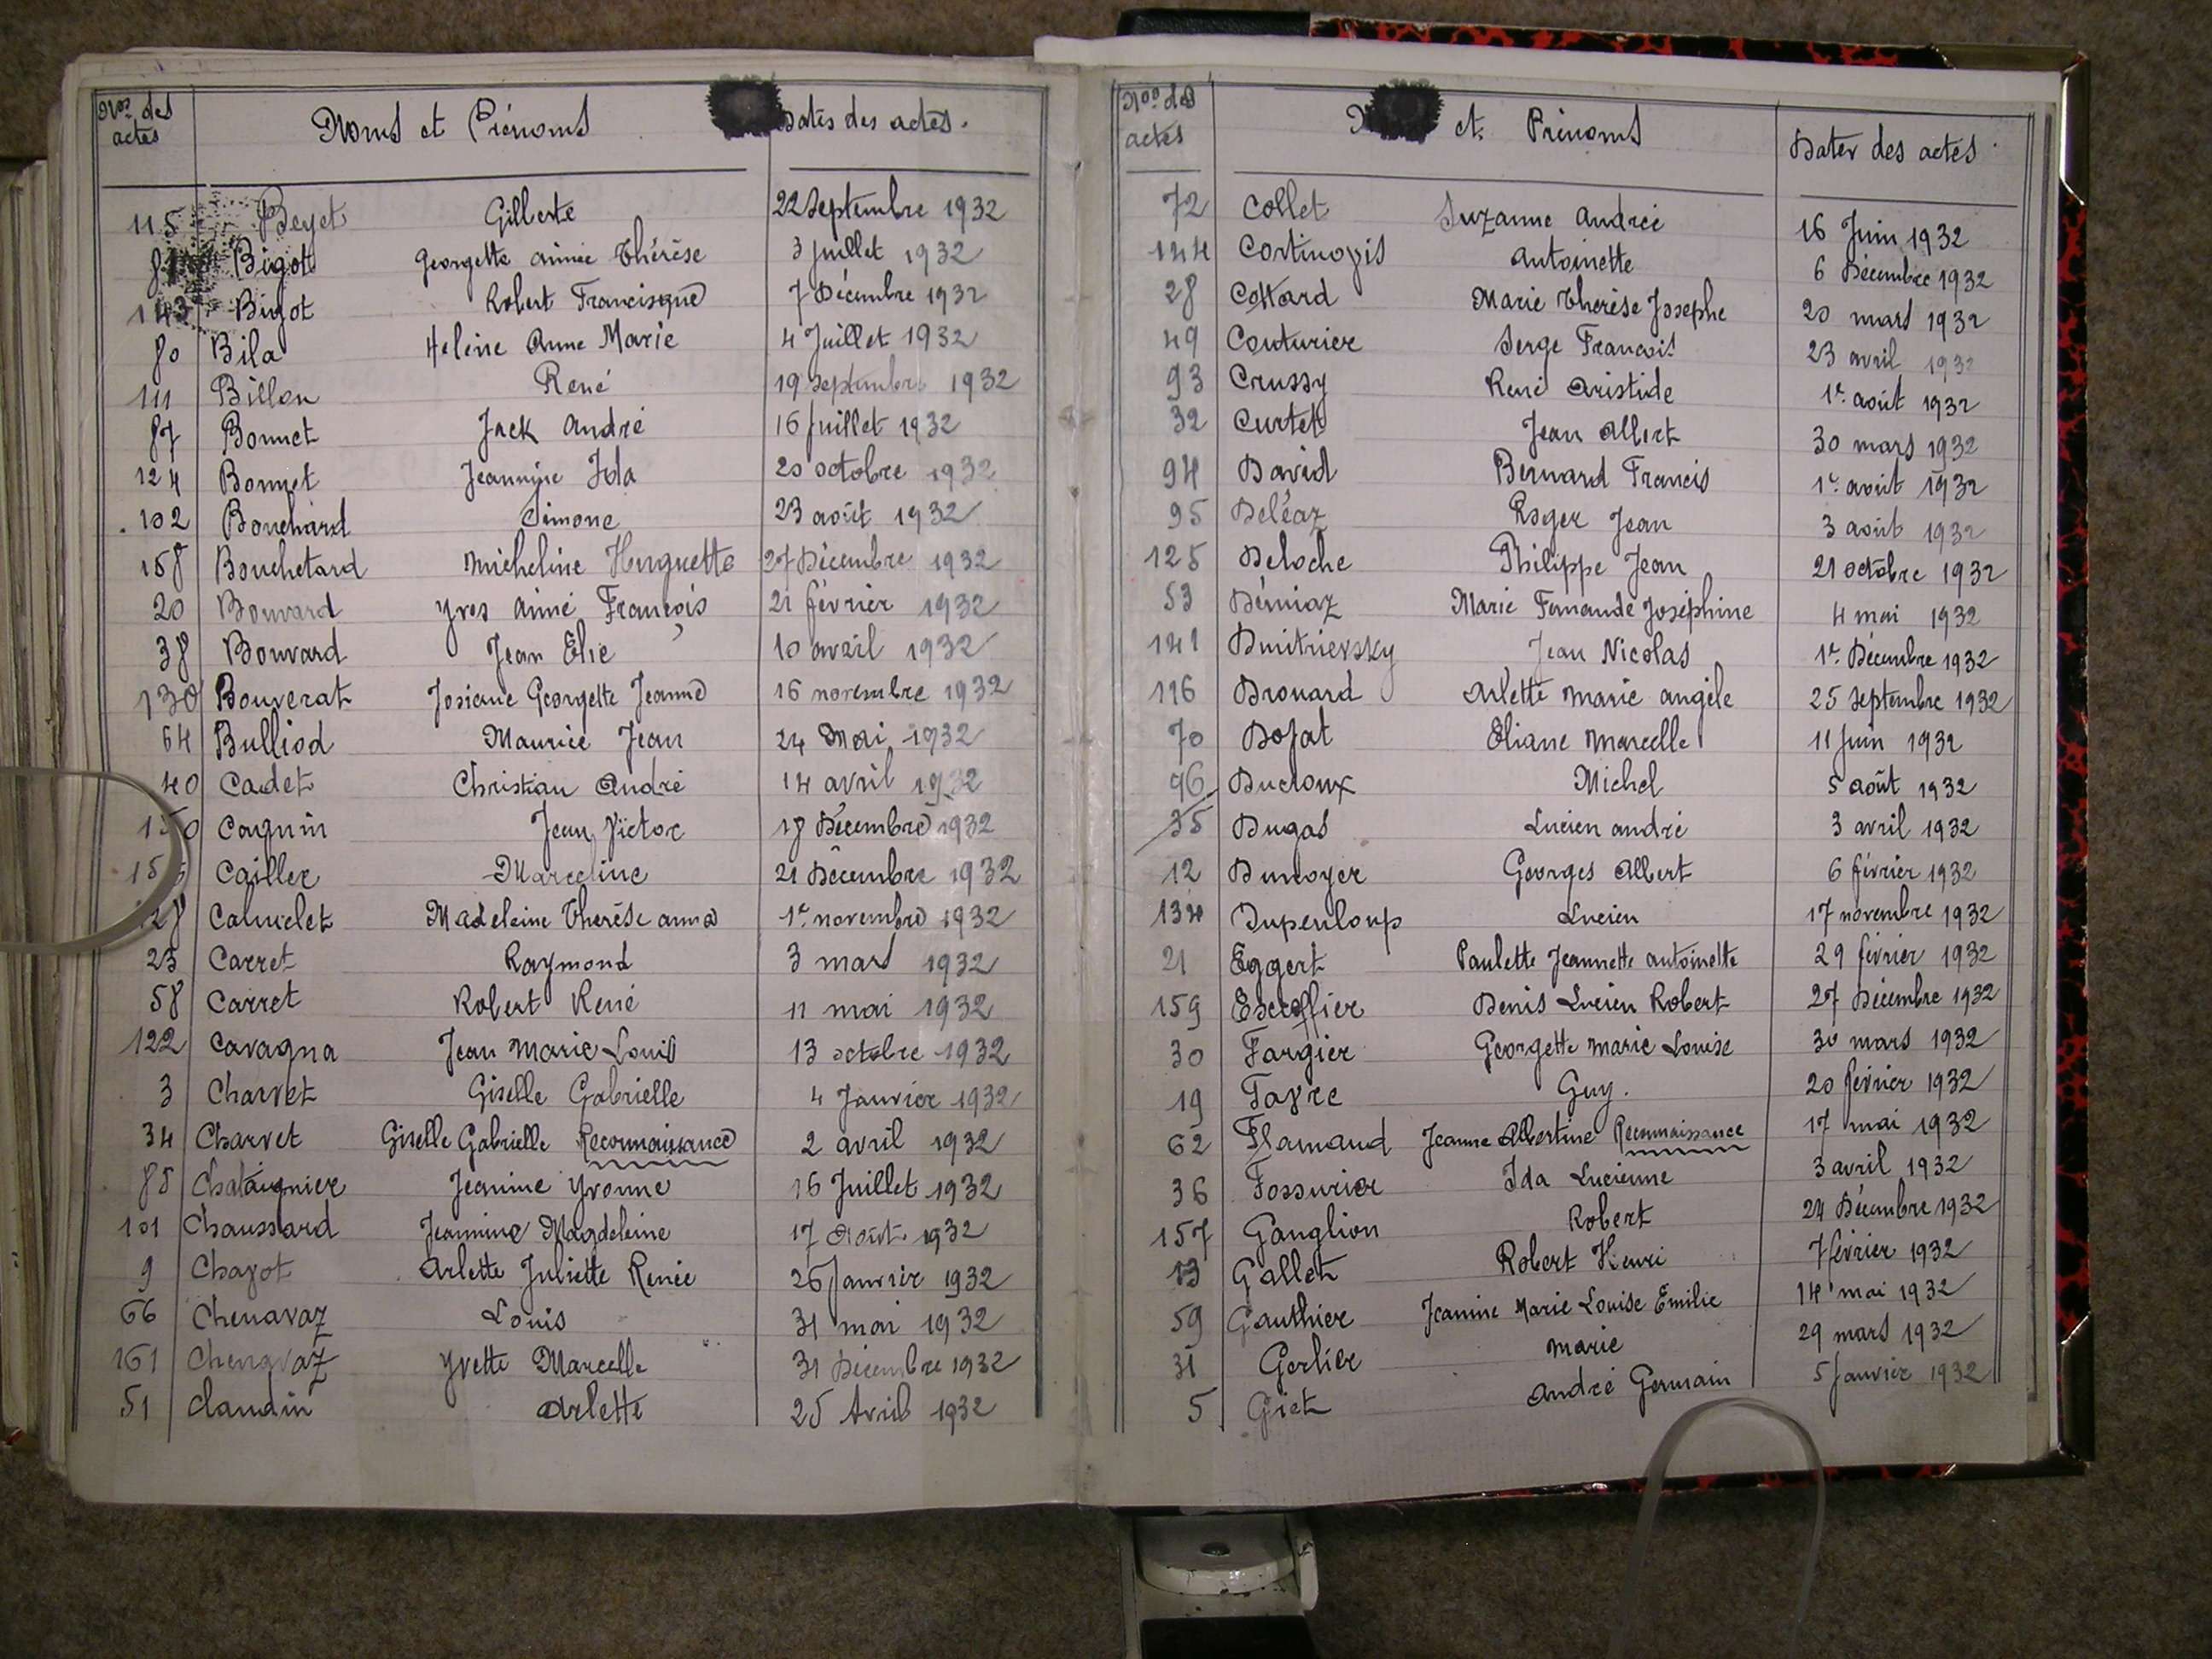 Nos des actes Noms et Prénoms Dates des actes.
115 Beyet Gilberte 22 Septembre 1932
Bigot Georgette Aimée Thérèse 3 Juillet 1932
143 Bigot Robert Francisque 7 Décembre 1932
80 Bila Helène Anne Marie 4 Juillet 1932
111 Billon René 19 Septembre 1932
87 Bonnet Jack André 16 Juillet 1932
124 Bonnet Jeannine Ida 20 octobre 1932
102 Bouchard Simone 23 août 1932
158 Bouchetard Micheline Huguette 27 Décembre 1932
20 Bouvard Yves Aimé François 21 février 1932
38 Bouvard Jean Elie 10 avril 1932
130 Bouverat Josiane Georgette Jeanne 16 novembre 1932
64 Bulliod Maurice Jean 24 Mai 1932
40 Cadet Christian André 14 avril 1932
150 Cagnin Jean Victor 18 Décembre 1932
Cailler Marceline 21 Décembre 1932
128 Calmelet Madeleine Thérèse anna 1er novembre 1932
23 Carret Raymond 3 mars 1932
58 Carret Robert René 11 mai 1932
122 Cavagna Jean Marie Louis 13 octobre 1932
3 Charvet Giselle Gabrielle 4 Janvier 1932
34 Charvet Giselle Gabrielle Reconnaissance 2 avril 1932
85 Chataignier Jeanine Yvonne 16 Juillet 1932
101 Chaussard Jeannine Magdeleine 17 Août 1932
9 Chayot Arlette Juliette Renée 26 Janvier 1932
66 Chenavaz Louis 31 mai 1932
161 Chenavaz Yvette Marcelle 31 Décembre 1932
51 Claudin Arlette 25 Avril 1932
Nos des actes et Prénoms Dates des actes.
72 Collet Suzanne Andrée 16 Juin 1932
144 Cortinovis Antoinette 6 Décembre 1932
28 Cottard Marie Thérèse Josephe 20 mars 1932
49 Couturier Serge François 23 avril 1932
93 Crussy René Aristide 1er août 1932
32 Curtet Jean Albert 30 mars 1932
94 David Bernard Francis 1er août 1932
95 Deléaz Roger Jean 3 août 1932
125 Deloche Philippe Jean 21 octobre 1932
53 Déniaz Marie Fernande Joséphine 4 mai 1932
141 Dmitrievsky Jean Nicolas 1er Décembre 1932
116 Drouard Arlette Marie Angèle 25 Septembre 1932
70 Dojat Eliane Marcelle 11 Juin 1932
96 Ducroux Michel 5 août 1932
35 Dugas Lucien andré 3 avril 1932
12 Dunoyer Georges Albert 6 février 1932
134 Dupenloup Lucien 17 novembre 1932
21 Eggert Paulette Jeannette antoinette 29 février 1932
159 Escoffier Denis Lucien Robert 27 Décembre 1932
30 Fargier Georgette Marie Louise 30 mars 1932
19 Favre Guy. 20 février 1932
62 Flamand Jeanne Albertine Reconnaissance 17 mai 1932
36 Fossurier Ida Lucienne 3 avril 1932
157 Ganglion Robert 24 Décembre 1932
13 Gallet Robert Henri 7 février 1932
59 Gauthier Jeanine Marie Louise Emilie 14 mai 1932
31 Gerlier Marie 29 mars 1932
5 Giet André Germain 5 Janvier 1932